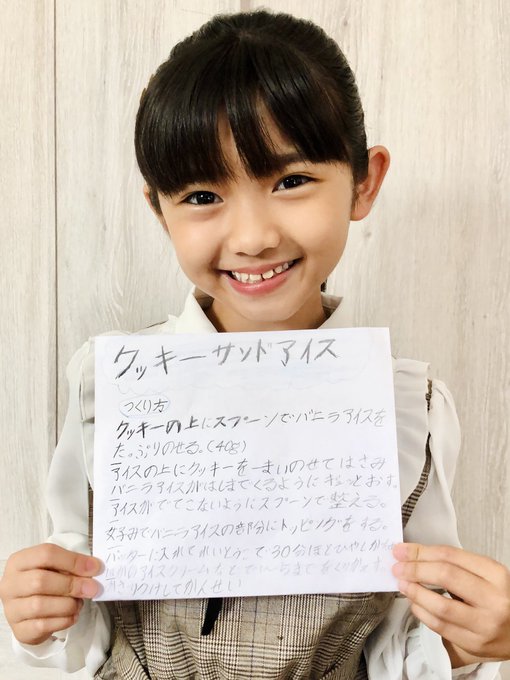 クッキーサンドアイス
つくり方
クッキーの上にスプーンでバニラアイスを
たっぷりのせる。(40g)
アイスの上にクッキーを一まいのせてはさみ
バニラアイスがはしまでくるようにギュッとおす。
アイスがでてこないようにスプーンで整える。
好みでバニラアイスの部分にトッピングをする。
バッターに入れてれいとうこで30分ほどひやしかため
アイスクリームなどで1〜5までをくりかえす。
つけしてかんせい